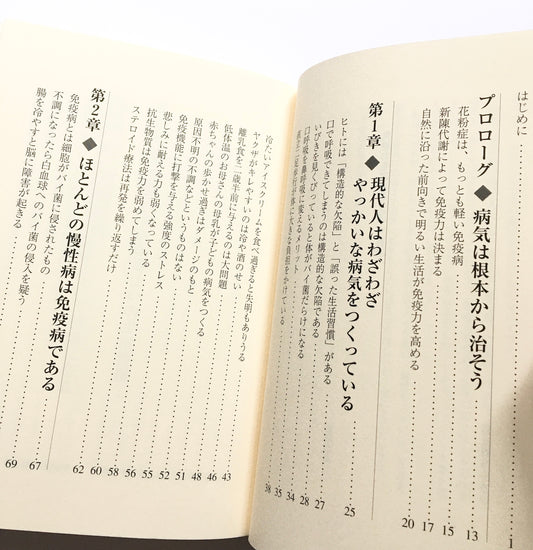 はじめに……… 1
プロローグ◆病気は根本から治そう……… 13
花粉症は、もっとも軽い免疫病……… 15
新陳代謝によって免疫力は決まる……… 17
自然に沿った前向きで明るい生活が免疫力を高める……… 20
第1章◆現代人はわざわざ
やっかいな病気をつくっている……… 25
ヒトには「構造的な欠陥」と「誤った生活習慣」がある……… 27
口で呼吸できてしまうのは構造的な欠陥である……… 28
いびきを見くびっていると体がバイ菌だらけになる……… 34
口呼吸を鼻呼吸に変えるメリット……… 35
38
冷たいアイスクリームを食べ過ぎると失明もありうる……… 43
ヤクザがキレやすいのは冷や酒のせい……… 46
離乳食を一歳半前に与えるのは大問題……… 48
低体温のお母さんの母乳が子どもの病気をつくる……… 49
赤ちゃんの歩かせ過ぎはダメージのもと……… 51
原因不明の不調などというものはない……… 52
免疫機能に打撃を与える強度のストレス……… 55
悲しみに耐える力も弱くなっている……… 56
抗生物質は免疫力を弱めてしまう……… 58
ステロイド療法は再発を繰り返すだけ……… 60
第2章◆ほとんどの慢性病は免疫病である……… 62
免疫病とは細胞がバイ菌に侵されたもの……… 67
不調になったら白血球へのバイ菌の侵入を疑う
腸を冷やすと脳に障害が起きる……… 69